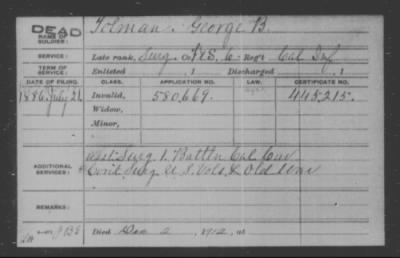 DEAD
NAME OF SOLDIER:
Tolman, George B.
SERVICE:
Late rank, Surg. F&S. 6 Reg't Cal Inf
Enlisted , 1 Discharged , 1
DATE OF FILING. CLASS. APPLICATION NO. LAW. CERTIFICATE NO.
1886 July 21 Invalid, 580,669. 445,215.
Widow,
Minor,
ADDITIONAL SERVICES:
Asst. Surg 1. Battn Cal Cav
Cont Surg U.S. Vols, & Old War
REMARKS:
Died Dec 2, 1912, at